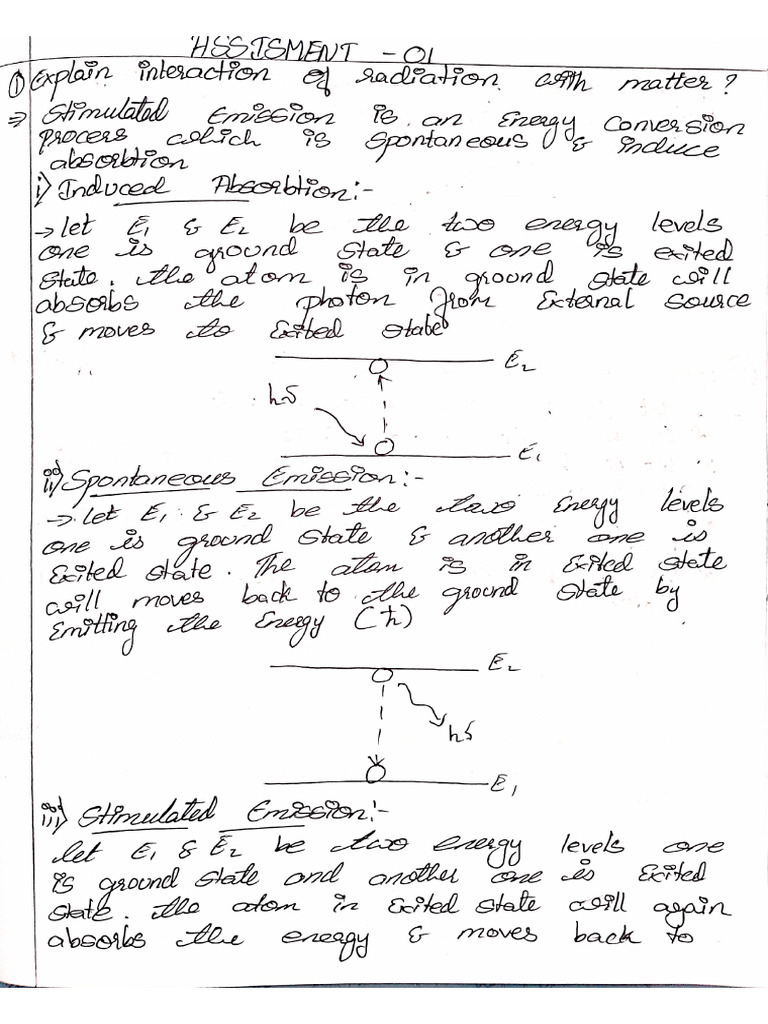 ASSISMENT - 01
① Explain interaction of radiation with matter?
⇒ Stimulated Emission is an Energy Conversion
process which is spontaneous & induce
absorbtion
i) Induced Absorbtion:-
→ let E₁ & E₂ be the two energy levels
one is ground state & one is exited
state. the atom is in ground state will
absorbs the photon from External source
& moves to Exited state
E₂
hδ
E₁
ii) Spontaneous Emission:-
→ let E₁ & E₂ be the two Energy levels
one is ground state & another one is
Exited state. The atom is in Exited state
will moves back to the ground state by
Emitting the Energy (ħ)
E₂
hδ
E₁
iii) Stimulated Emission:-
let E₁ & E₂ be two energy levels one
is ground state and another one is Exited
state. the atom in Exited state will again
absorbs the energy & moves back to